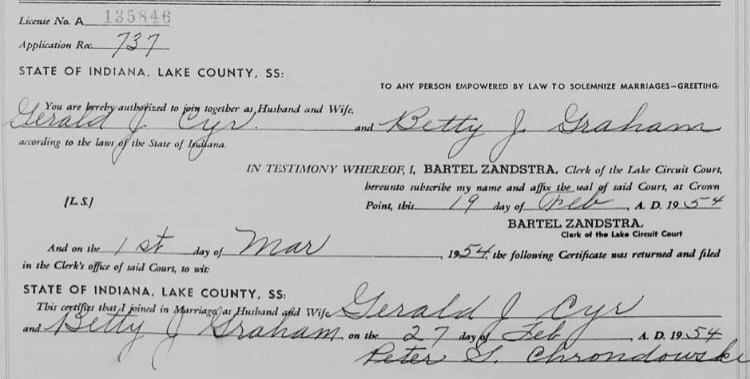 License No. A 135846
Application Rec. 737
STATE OF INDIANA, LAKE COUNTY, SS:
TO ANY PERSON EMPOWERED BY LAW TO SOLEMNIZE MARRIAGES—GREETING:
You are hereby authorized to join together as Husband and Wife,
Gerald J. Cyr. and Betty J. Graham
according to the laws of the State of Indiana.
IN TESTIMONY WHEREOF, I, BARTEL ZANDSTRA, Clerk of the Lake Circuit Court,
hereunto subscribe my name and affix the seal of said Court, at Crown
[L.S.] Point, this 19 day of Feb A. D. 1954
BARTEL ZANDSTRA,
Clerk of the Lake Circuit Court
And on the 1st day of Mar, 1954, the following Certificate was returned and filed
in the Clerk's office of said Court, to wit:
STATE OF INDIANA, LAKE COUNTY, SS:
This certifies that I joined in Marriage as Husband and Wife Gerald J Cyr
and Betty J Graham on the 27 day of Feb, A. D. 1954
Peter S. Chrondowski